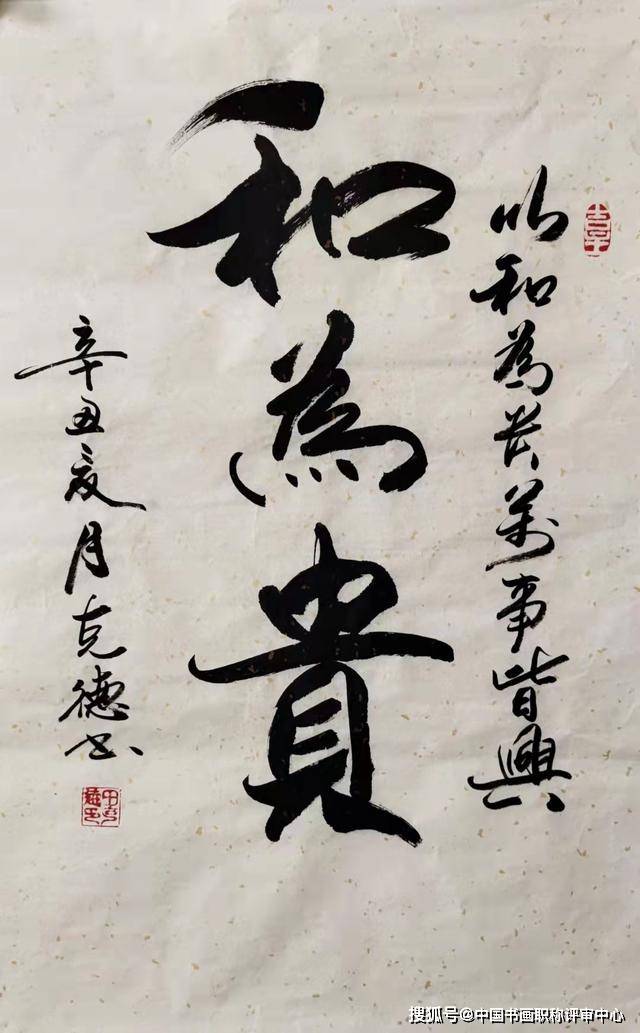 以和為萬事皆興
和為貴
辛丑夏月克德书
搜狐号@中国书画职称评审中心